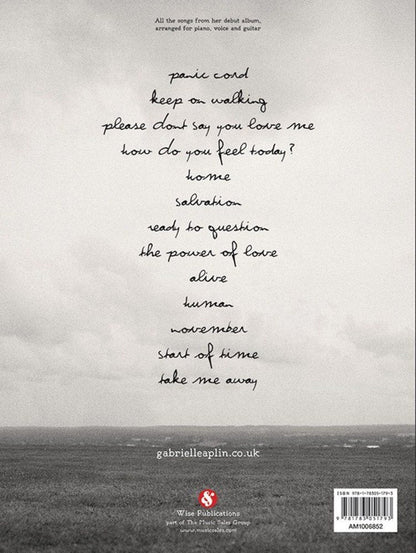 All the songs from her debut album,
arranged for piano, voice and guitar
panic cord
keep on walking
please dont say you love me
how do you feel today?
home
salvation
ready to question
the power of love
alive
human
november
start of time
take me away
gabrielleaplin.co.uk
Wise Publications
part of The Music Sales Group
www.musicsales.com
ISBN 978-1-78305-179-3
9 781783 051793
AM1006852